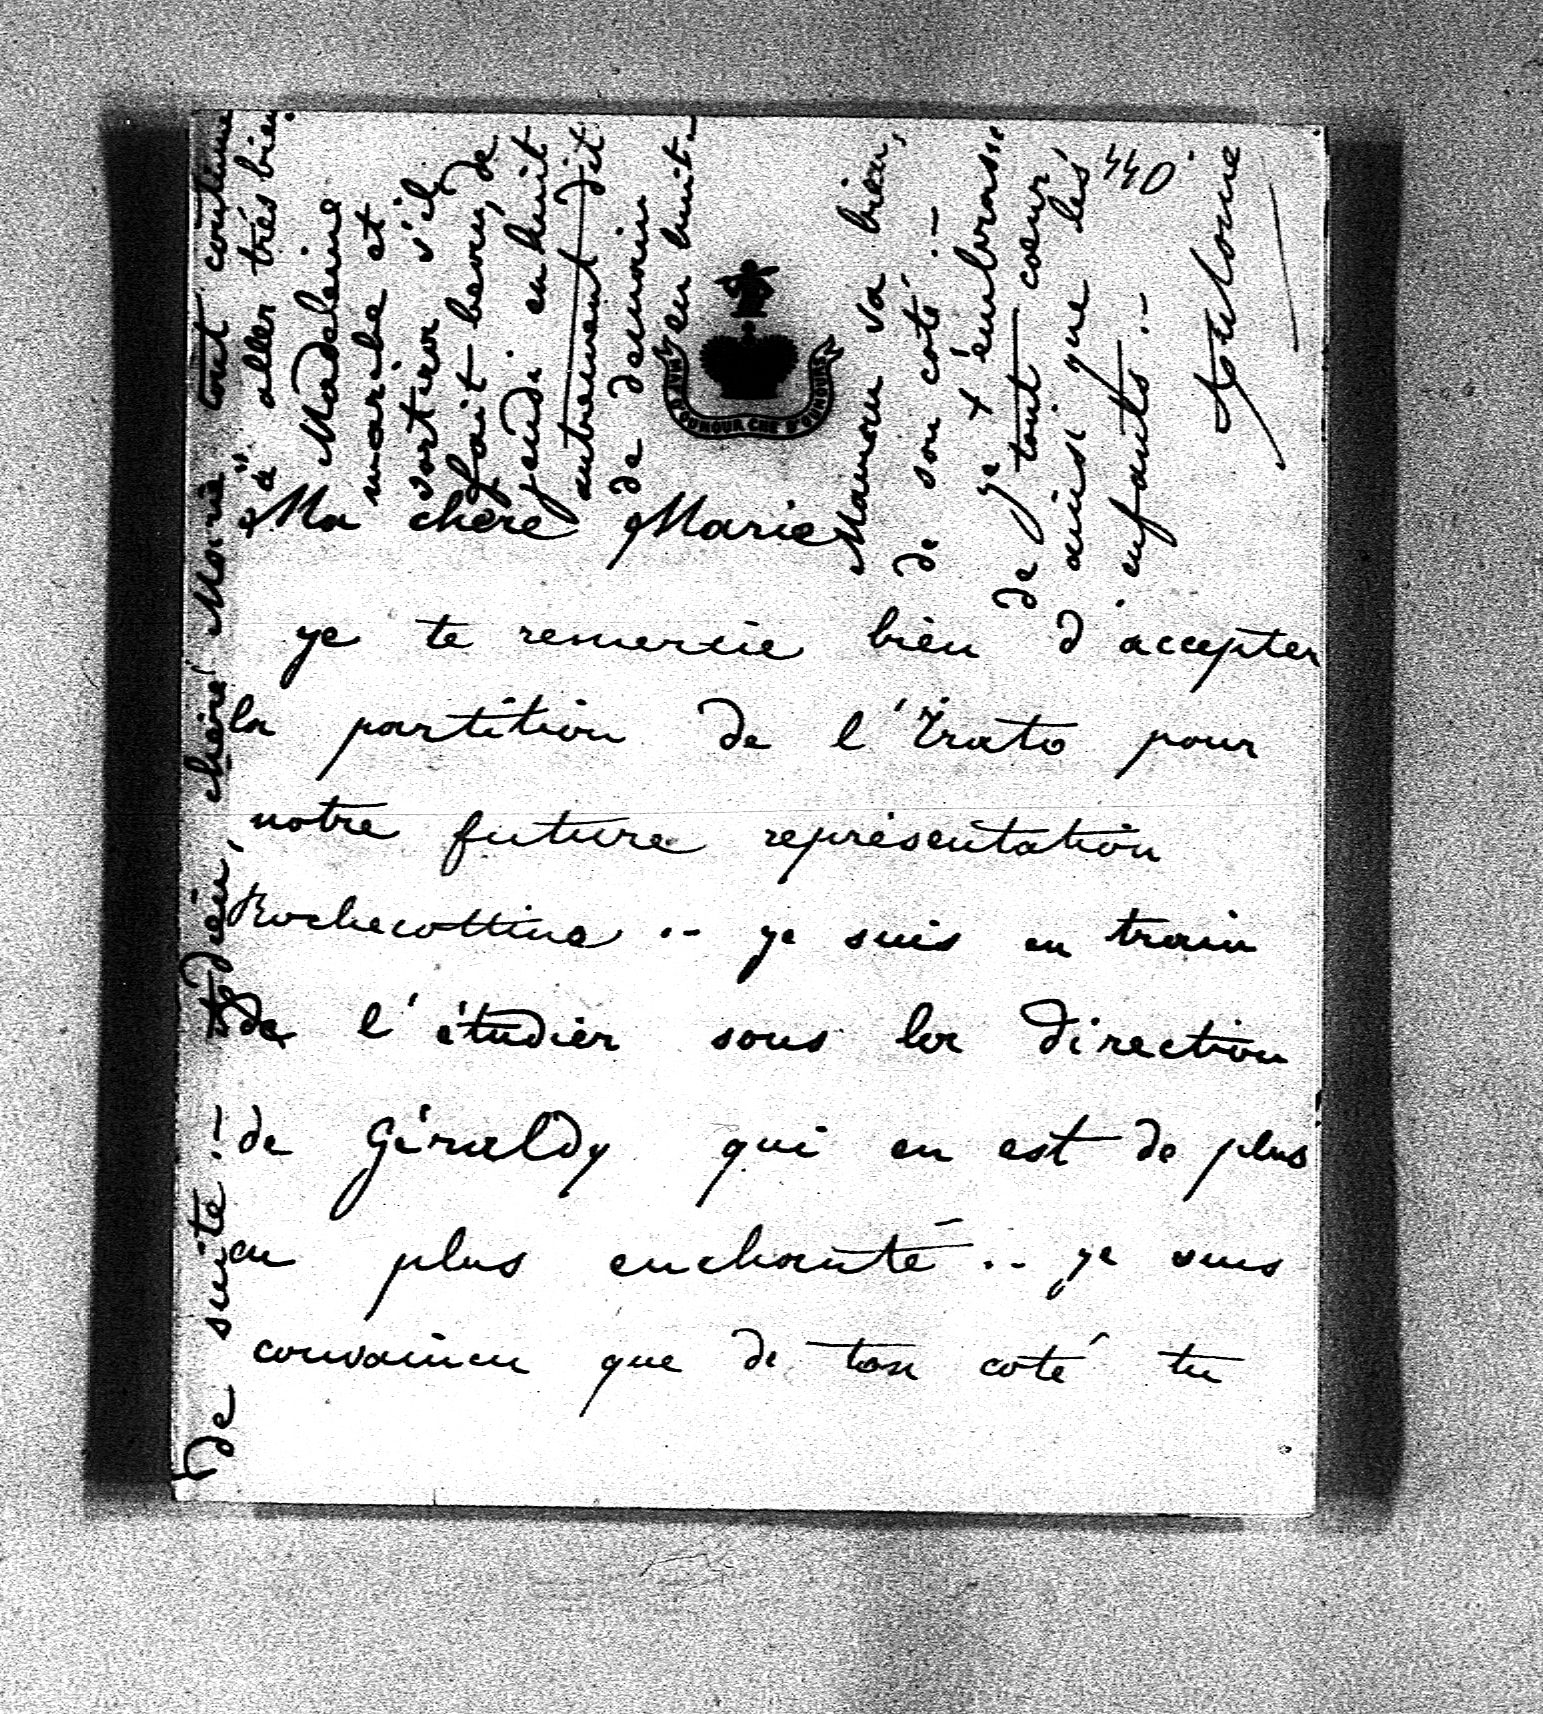 440
RAY D'OUNOUR CHE D'OUNOURS
Ma chere Marie
je te remercie bien d'accepter
la partition de l'Irato pour
notre future représentation
Rochecottine .. je suis en train
de l'étudier sous la direction
de Géraldy qui en est de plus
en plus enchanté .. je suis
convaincu que de ton coté tu
de suite ! Adieu, chère Marie tout continue
à aller très bien.
Madeleine
marche et
sortira s'il
fait beau, de
jeudi en huit
autrement dit
de demain
en huit.
Maman va bien,
de son coté .-
je t'embrasse
de tout coeur,
ainsi que les
enfants .-
Antoine